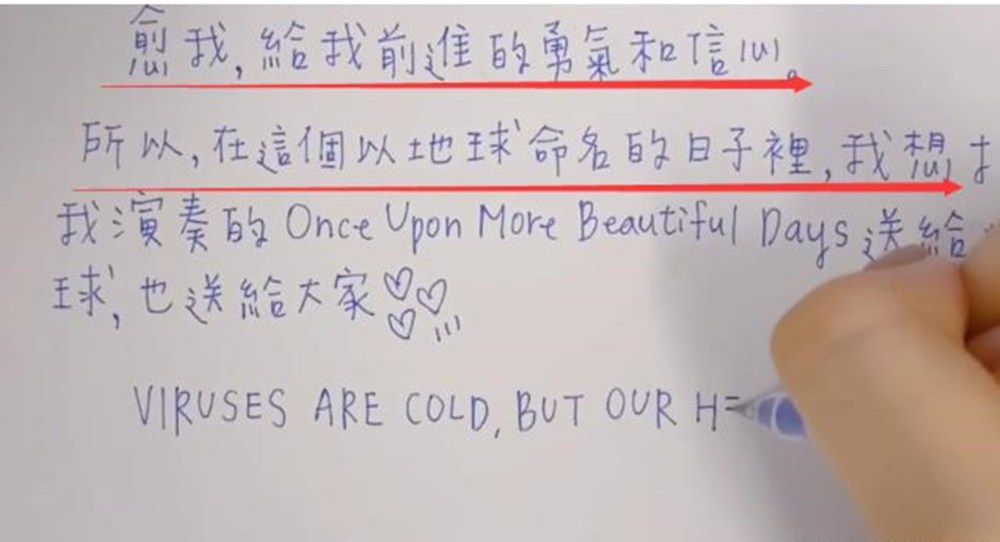 愈我,給我前進的勇氣和信心。
所以,在這個以地球命名的日子裡,我想
我演奏的 Once Upon More Beautiful Days 送給
球,也送給大家
VIRUSES ARE COLD, BUT OUR H